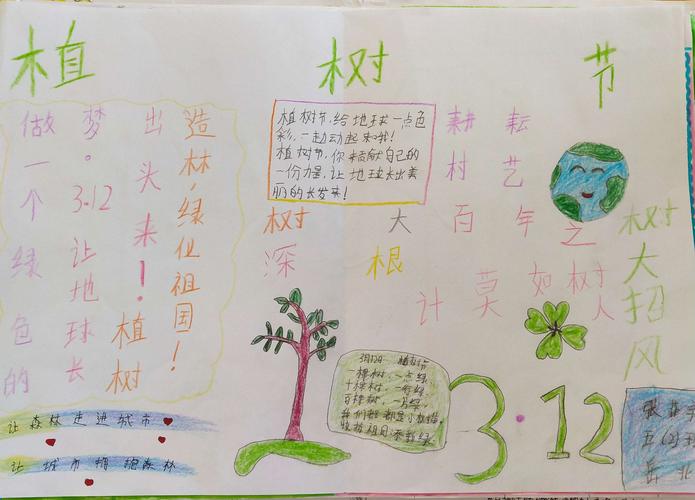 植 树 节
做一个绿色的
梦。3.12让地球长
出头来！植树
造林,绿化祖国！
植树节,给地球一点色
彩,一起动起来哦！
植树节,你来贡献自己的
一份力量,让地球长出美
丽的长发来！
耕 耘
村 艺
树 大 百 年 之
深 根 计 莫 如 树
人
树大招风
3.12
一棵树,一点绿,
十棵树,一行绿,
百棵树,一片绿,
让 森林 走 进 城市
让 城市 拥 抱 森林
张
五(2)